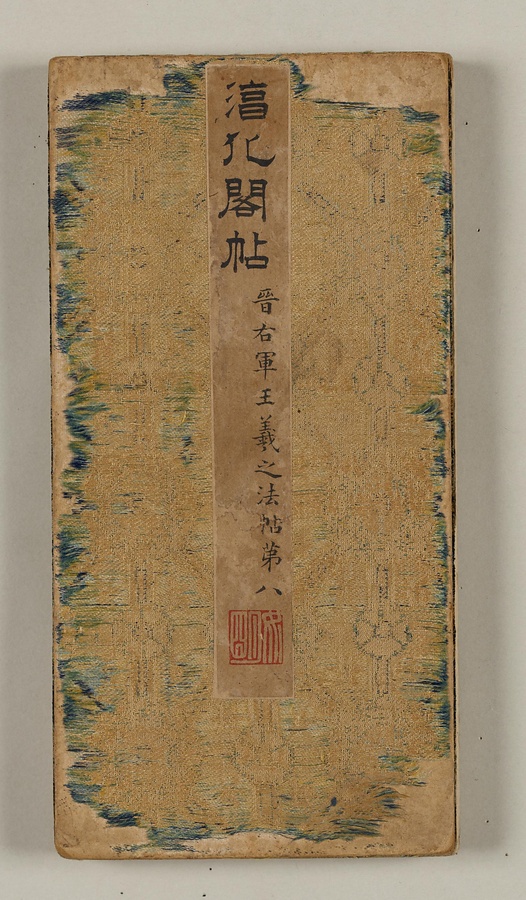 淳化閣帖
晉右軍王羲之法帖第八